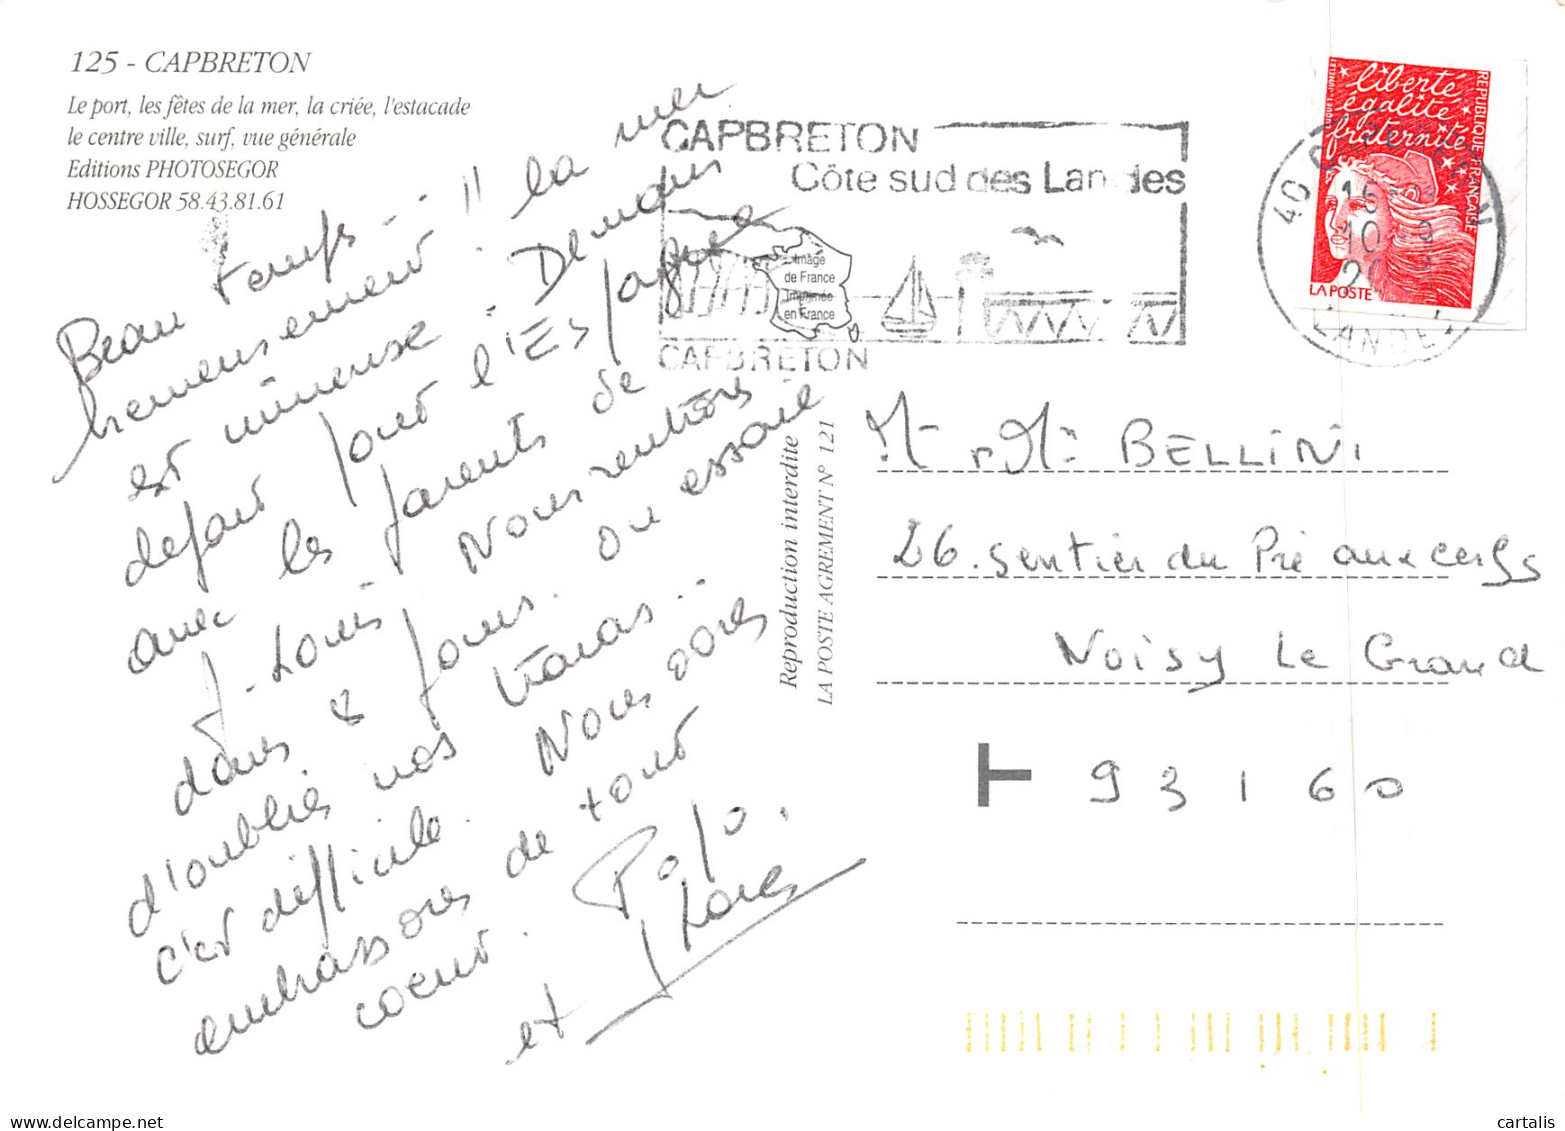 125 - CAPBRETON
Le port, les fêtes de la mer, la criée, l'estacade
le centre ville, surf, vue générale
Editions PHOTOSEGOR
HOSSEGOR 58.43.81.61
Beau temps
heureusement !! la mer
est mineuse. Demain
depart pour l'Espagne
avec les parents de
J-Louis Nous rentrons
dans 8 jours. on essaie
d'oublier nos tracas..
c'est difficile. Nous vous
embrassons de tout
coeur. Popo.
et
Reproduction interdite
LA POSTE AGREMENT N° 121
CAPBRETON
Côte sud des Landes
Image
de France
Imprimée
en France
CAPBRETON
liberté
égalité
fraternité
REPUBLIQUE FRANÇAISE
LA POSTE
40
16
10
LANDES
Mr Mme BELLINI
26. Sentier du Pré aux cerfs
Noisy Le Grand
93160
cartalis
www.delcampe.net